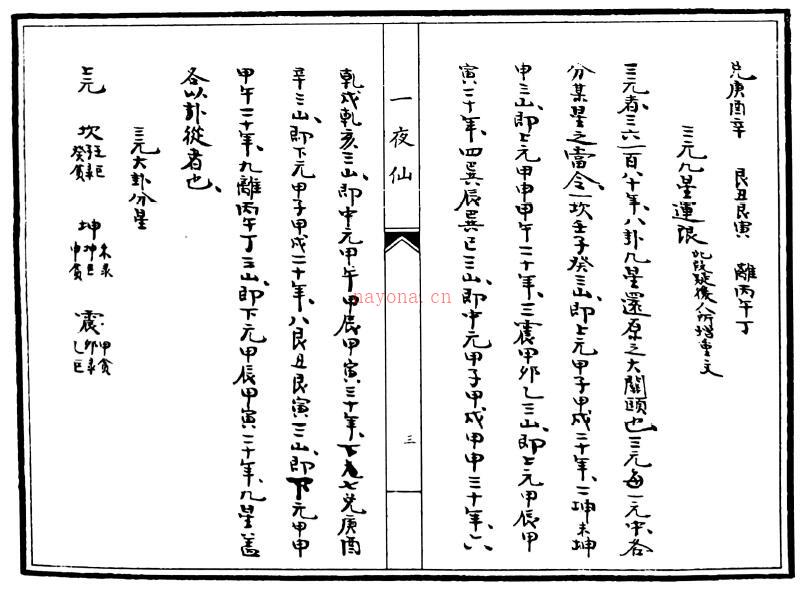 兑庚酉辛　艮丑艮寅　離丙午丁
三元九星運限 此段疑後人所增重文
三元者、三六一百八十年、八卦九星還原之大關頤也、三元每一元中、各
分某星之當令、一坎壬子癸三山、即上元甲子甲戌二十年、二坤未坤
申三山、即上元甲申甲午二十年、三震甲卯乙三山、即上元甲辰甲
寅二十年、四巽辰巽巳三山、即中元甲子甲戌甲申三十年、六
一夜仙
三
乾戌乾亥三山、即中元甲午甲辰甲寅三十年、下元七兑庚酉
辛三山、即下元甲子甲戌二十年、八艮丑艮寅三山、即下元甲申
甲午二十年、九離丙午丁三山、即下元甲辰甲寅二十年、九星蓋
各以卦從者也、
三元大卦分星
上元　坎 壬巨 子祿 癸貪　坤 未祿 坤巨 申貪　震 甲貪 卯祿 乙巨
nayona.cn